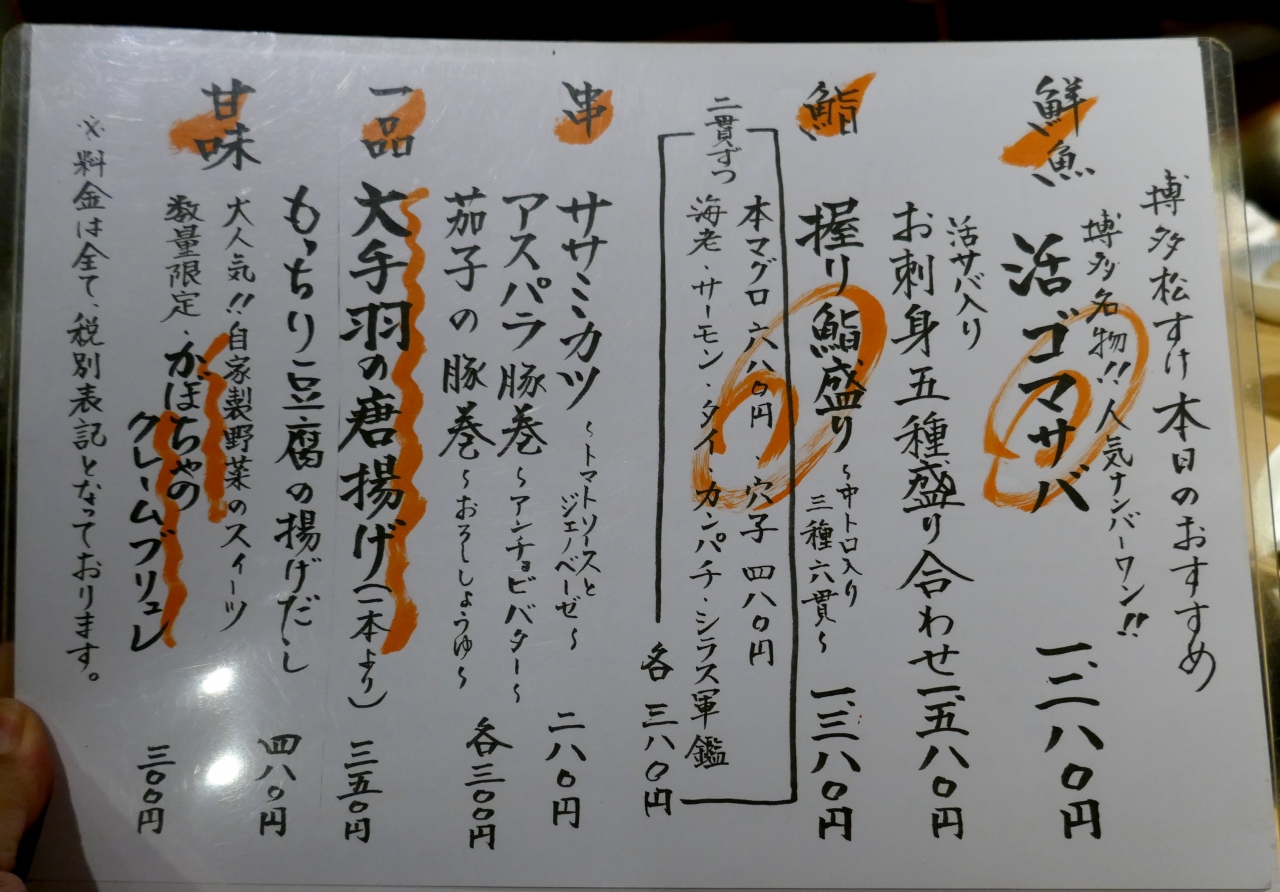 博多松すけ本日のおすすめ
鮮魚
博多名物!!人気ナンバーワン!!
活ゴマサバ 一、二八〇円
活サバ入り
お刺身五種盛り合わせ 一、五八〇円
鮨
握り鮨盛り 〜中トロ入り 三種六貫〜 一、三八〇円
二貫ずつ
本マグロ 六八〇円、穴子 四八〇円
海老・サーモン・タイ・カンパチ・シラス軍鑑
各 三八〇円
串
ササミカツ 〜トマトソースと ジェノベーゼ〜 二八〇円
アスパラ豚巻 〜アンチョビバター〜
茄子の豚巻 〜おろししょうゆ〜
各三〇〇円
一品
大手羽の唐揚げ(一本より) 三五〇円
もっちり豆腐の揚げだし 四八〇円
甘味
大人気!!自家製野菜のスイーツ
数量限定・かぼちゃの
クレームブリュレ 三〇〇円
※料金は全て、税別表記となっております。